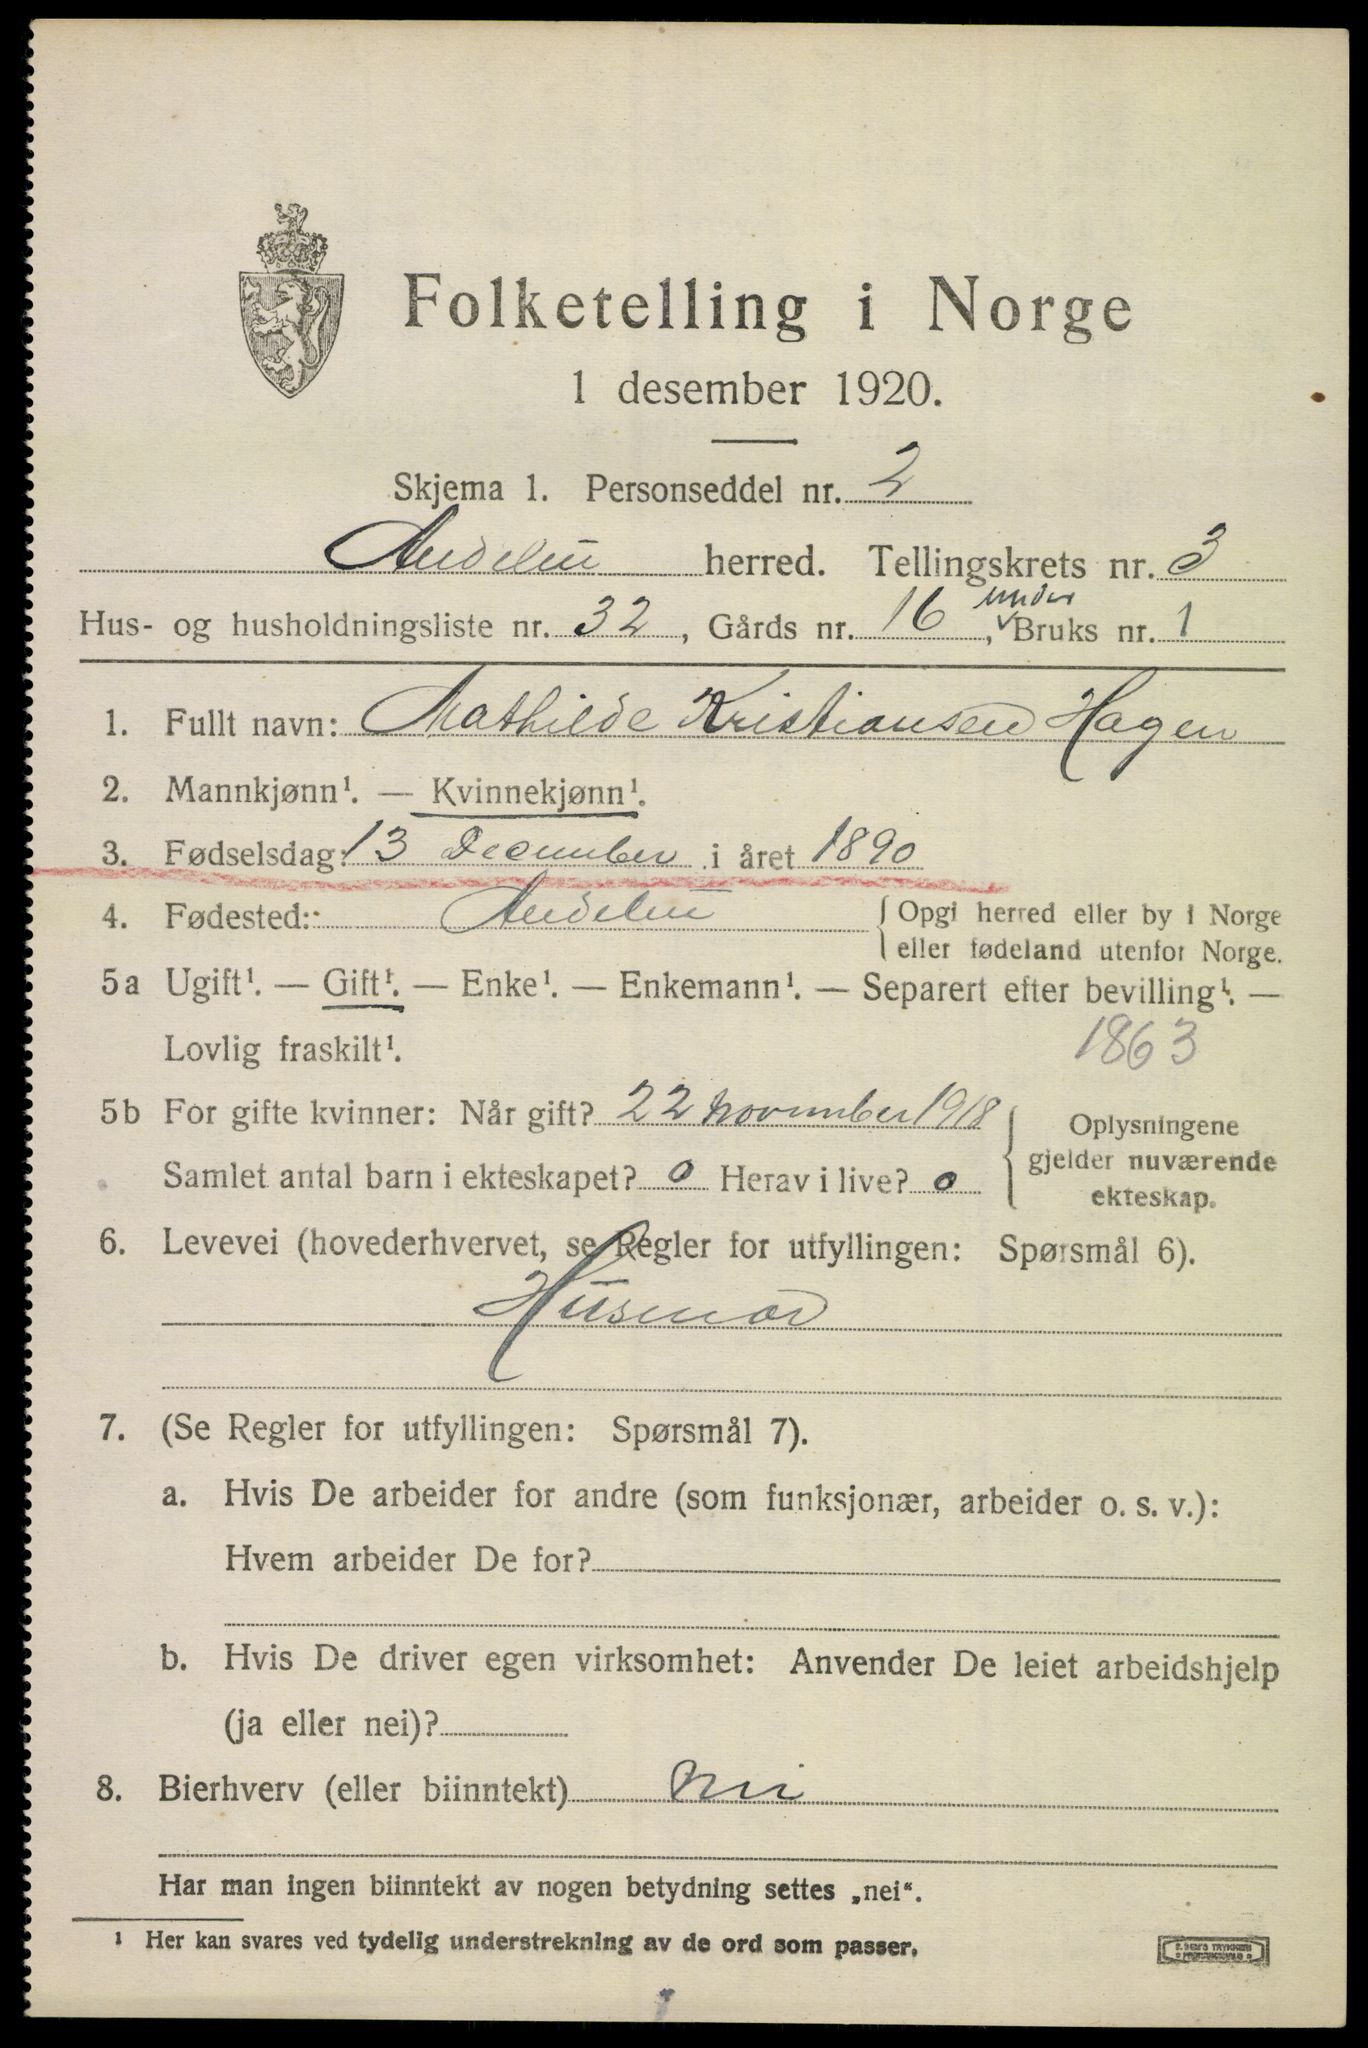 Folketelling i Norge
1 desember 1920.
Skjema 1. Personseddel nr. 2
Andebu herred. Tellingskrets nr. 3
under
Hus- og husholdningsliste nr. 32, Gårds nr. 16, Bruks nr. 1
1. Fullt navn: Mathilde Kristiansen Hagen
2. Mannkjønn¹. — Kvinnekjønn¹.
3. Fødselsdag: 13 December i året 1890
4. Fødested: Andebu { Opgi herred eller by i Norge
eller fødeland utenfor Norge.
5a Ugift¹. — Gift¹. — Enke¹. — Enkemann¹. — Separert efter bevilling¹. —
Lovlig fraskilt¹. 1863
5b For gifte kvinner: Når gift? 22 November 1918 { Oplysningene
gjelder nuværende
Samlet antal barn i ekteskapet? 0 Herav i live? 0 ekteskap.
6. Levevei (hovederhvervet, se Regler for utfyllingen: Spørsmål 6).
Husmor
7. (Se Regler for utfyllingen: Spørsmål 7).
a. Hvis De arbeider for andre (som funksjonær, arbeider o. s. v.):
Hvem arbeider De for?
b. Hvis De driver egen virksomhet: Anvender De leiet arbeidshjelp
(ja eller nei)?
8. Bierhverv (eller biinntekt) Nei
Har man ingen biinntekt av nogen betydning settes „nei“.
¹ Her kan svares ved tydelig understrekning av de ord som passer.